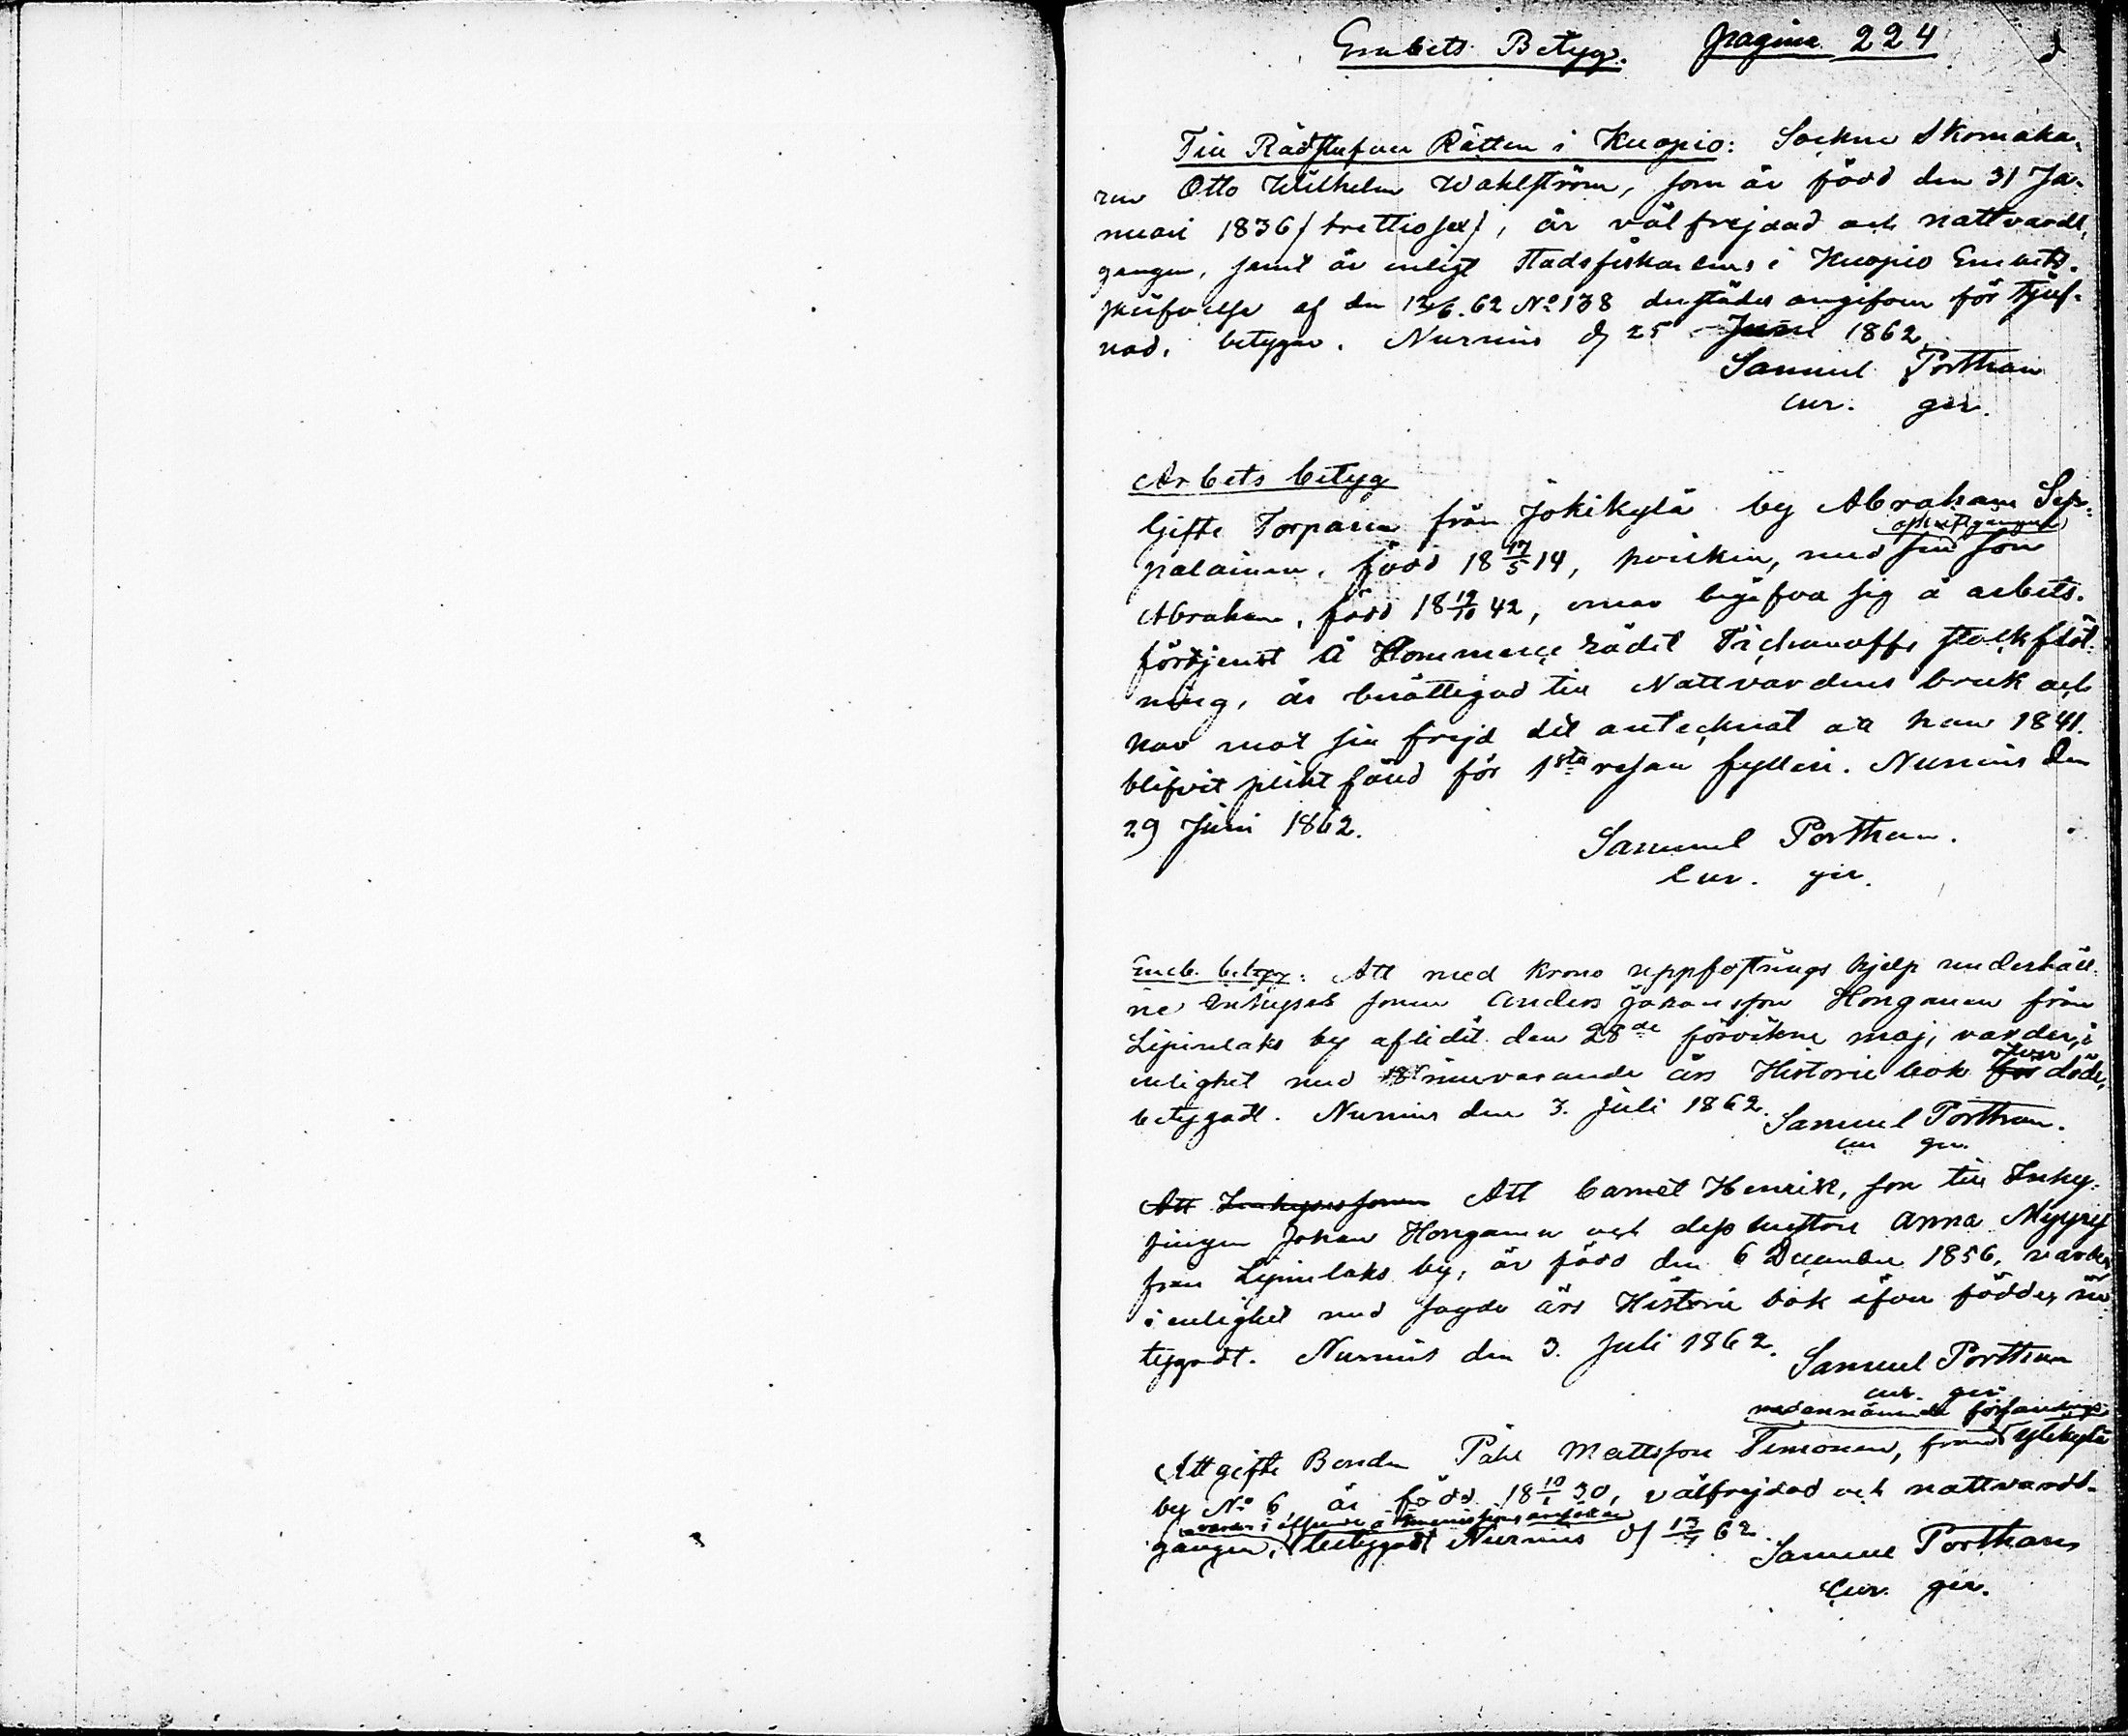 Embets Betyg. pagina 224
Till Rådstufvu Rätten i Kuopio: Sockne Skomaka-
ren Otto Wilhelm Wahlström, som är född den 31 Ja-
nuari 1836 /trettiosex/, är välfrejdad och nattvards-
gången, samt är enligt Stadsfiskalens i Kuopio Embets-
skrifvelse af den 12/6.62 No 138 derstädes angifven för tjuf-
nad, betygar. Nurmis d 25 Juni 1862.
Samuel Porthan
cur. ger.
Arbets betyg
Gifte Torparen från Jokikylä by Abraham Sep-
palainen, född 18 17/5 14, med sin son
Abraham, född 18 19/10 42, ernar begifva sig å arbets-
förtjenst å Kommerce rådet Tichanoffs stockflöt-
ning, är berättigad till Nattvardens bruk och
har mot sin frejd det antecknat att han 1841
blifvit pliktfäld för 1sta resan fylleri. Nurmis den
29 Juni 1862.
Samuel Porthan.
Cur. ger.
Emb. betyg: Att med Krono uppfostrings hjelp underhåll-
ne Inhyses sonen Anders Johansson Honganen från
Lipinlaks by aflidit den 28de förvikne maj, varder, i
öfver
enlighet med innevarande års Historie bok för döde,
betygadt. Nurmis den 3. Juli 1862.
Samuel Porthan.
cur ger.
Att Inhysessonen Att barnet Henrik, son till Inhy-
singen Johan Honganen och dess hustru Anna Myyry
från Lipinlaks by, är född den 6 December 1856, varder
i enlighet med sagde års Historie bok öfver födde,
tygadt. Nurmis den 3. Juli 1862.
Samuel Porthan
cur. ger.
nedannämnde församlings
Att gifte Bonden Påhl Mattsson Timonen, från Ylikylä
by No 6, är född 18 10/1 30, välfrejdad och nattvards-
varder i afseende å
gången, betygadt Nurmis d 13/7 62.
Samuel Porthan
Cur. ger.